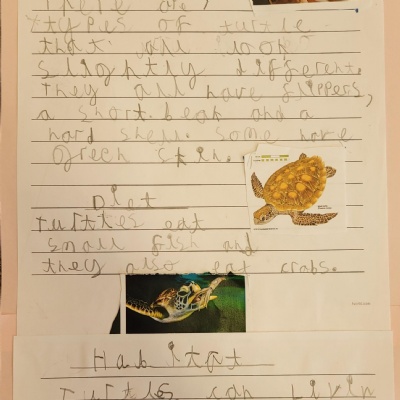 There are 7
types of turtle
that all look
slightly different.
They all have flippers,
a short beak and a
hard shell. Some have
green skin.
Diet
Turtles eat
small fish and
they also eat crabs.
Habitat
Turtles can Live in